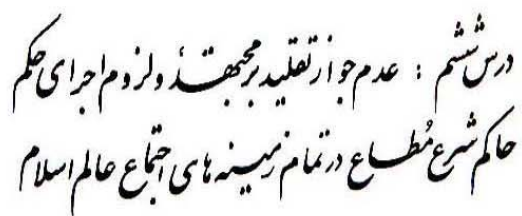 درس ششم : عدم جواز تقلید بر مجتهد و لزوم اجرای حکم
حاکم شرع مُطاع در تمام زمینه های اجتماع عالم اسلام